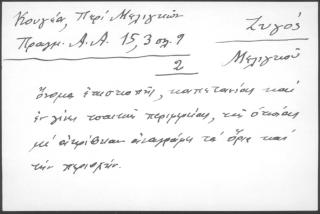 Κουγέα, Περί Μελιγκών
Πραγμ. Α.Α. 15,3 σελ. 9
2
Ζυγός
Μελιγκού
ὄνομα ἐπισκοπῆς, καπετανίας καί
ἐν γένει τοπικῆς περιφερείας, τῆς ὁποίας
μέ ἀκρίβειαν ἀναγράφει τά ὅρια καί
τήν περιοχήν.